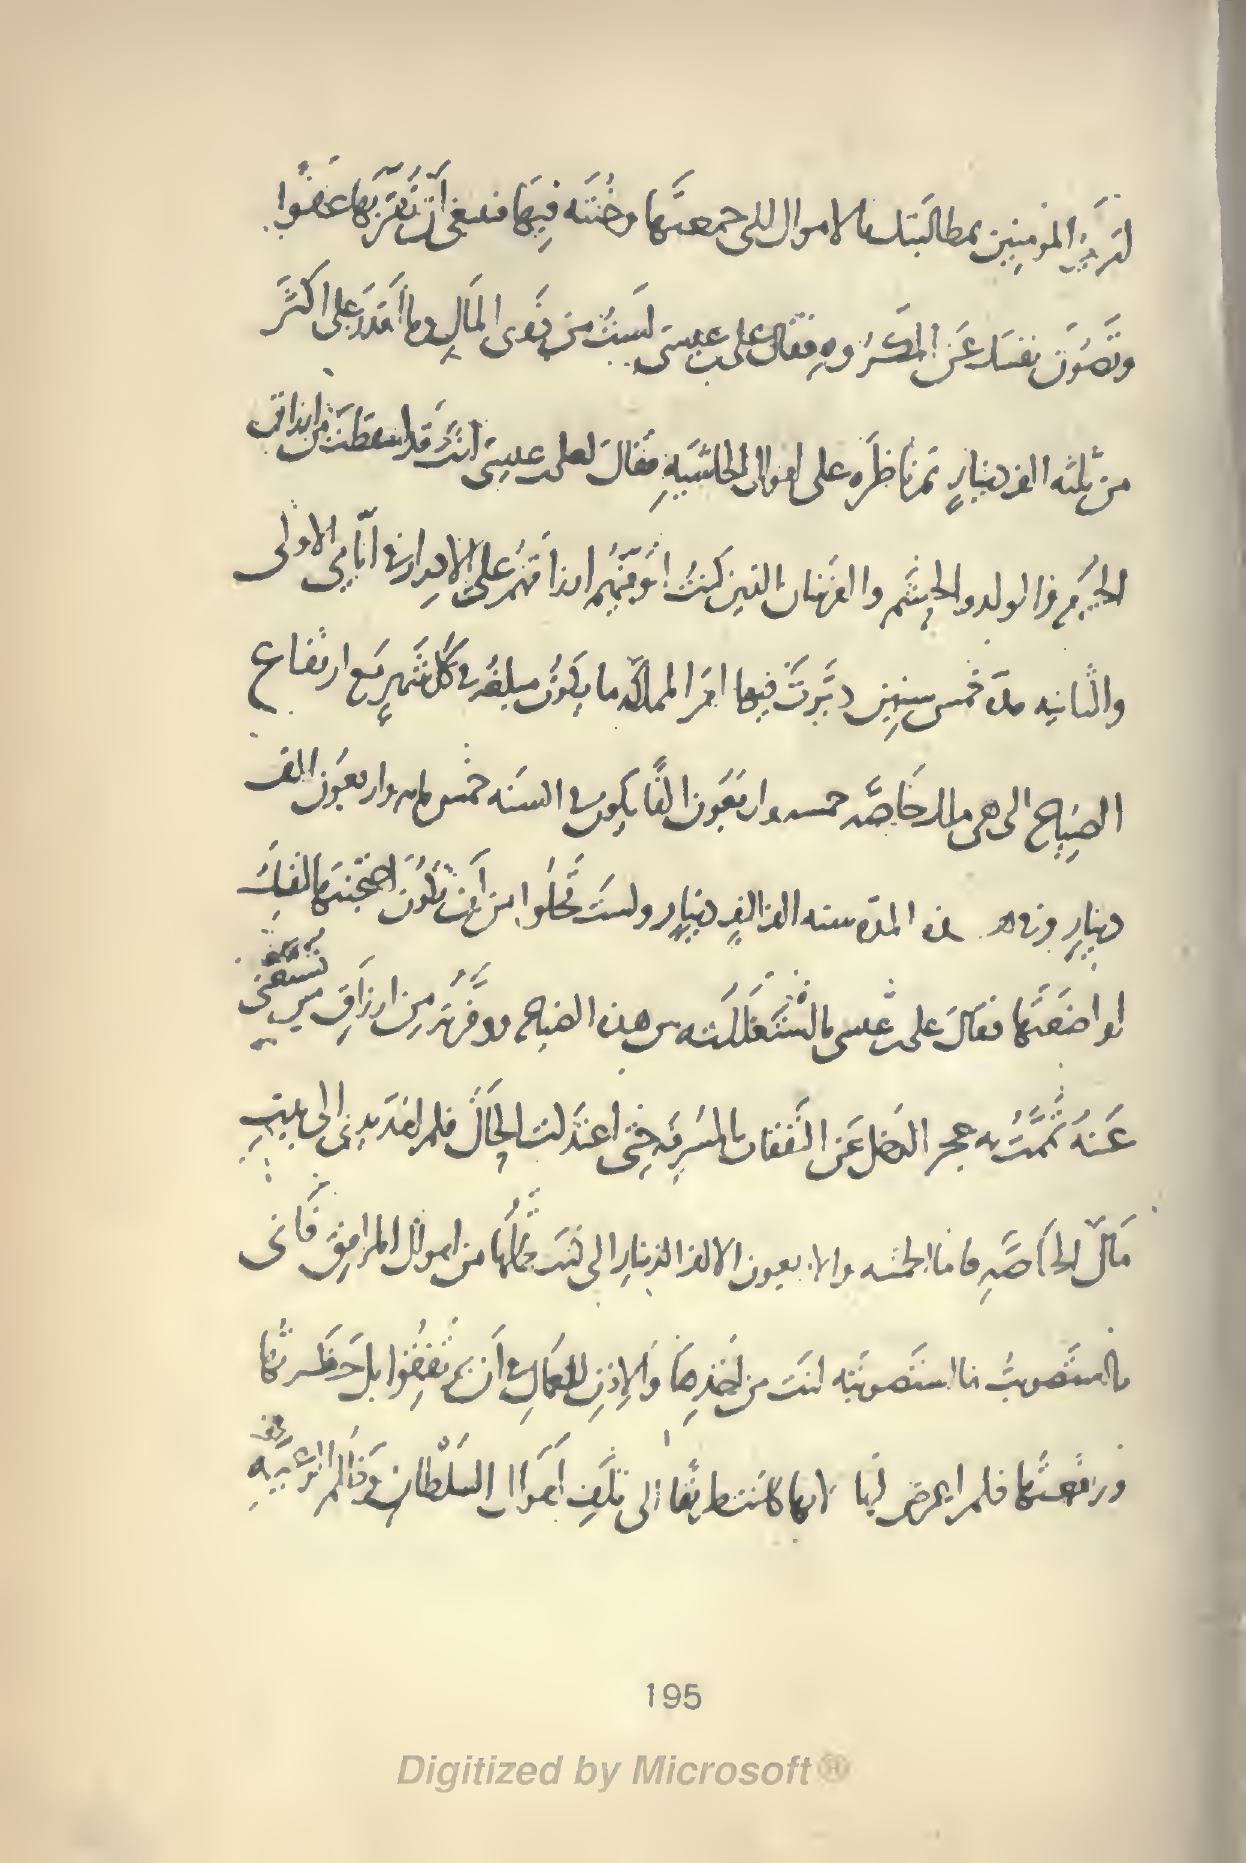 امير المؤمنين بمطالبتك بالاموال التى جمعتها وخُنته فيها فينبغى أن تُقرّ بها عفوًا
وتَصُون نفسك عن المكروه فقال على بن عيسى لستُ من ذوى المالِ وما أقدر على اكثر
من ثلثه الف دينارٍ ثم ناظَره على اموال الحاشيه فقالَ لعلى بن عيسى انتَ قد اسقطتَ من ارزاق
الحُرَم والولد والحشم والفرسان الذين كنتُ اُوفّيهم ارزاقهُم على الادرار فى ايّامى الاولى
والثانيه مدّه خمس سنين دبّرتَ فيها امرَ المملكه ما يكونُ مبلغه فى كُلّ شهرٍ مع ارتفاع
الضِياع التى هى ملك خاصّه خمسه واربعون الفًا يكون فى السنه خمس مايه واربعون الف
دينارٍ وفى هذه المدّه الف الفِ دينارٍ ولستَ تخلُوا من أن تكُونَ احتجنتها لنفسك
او اضعتَها فقالَ على بن عيسى ما استغللته من هذه الضياع ووفّرته من ارزاق من يُستغنى
عنهُ تمّمتُ به عجز الدخل عن النفقات المسرفه حتى اعتدلت الحالُ فلم امدد يدى الى بيتِ
مال الخاصّه فامّا الخمسه والاربعون الالف الدينار التى كنت من اموال المرافق فانى
ما استصوبتُ ما استصوبته انتَ من اخذها والاذنِ للعمال فى أن يرتفقُوا بل حظرتُها
ورفعتُها فلم اعرض لها لانها كانت طريقًا الى تلَفِ اموال السلطان وظُلم الرعيّهِ
195
Digitized by Microsoft®